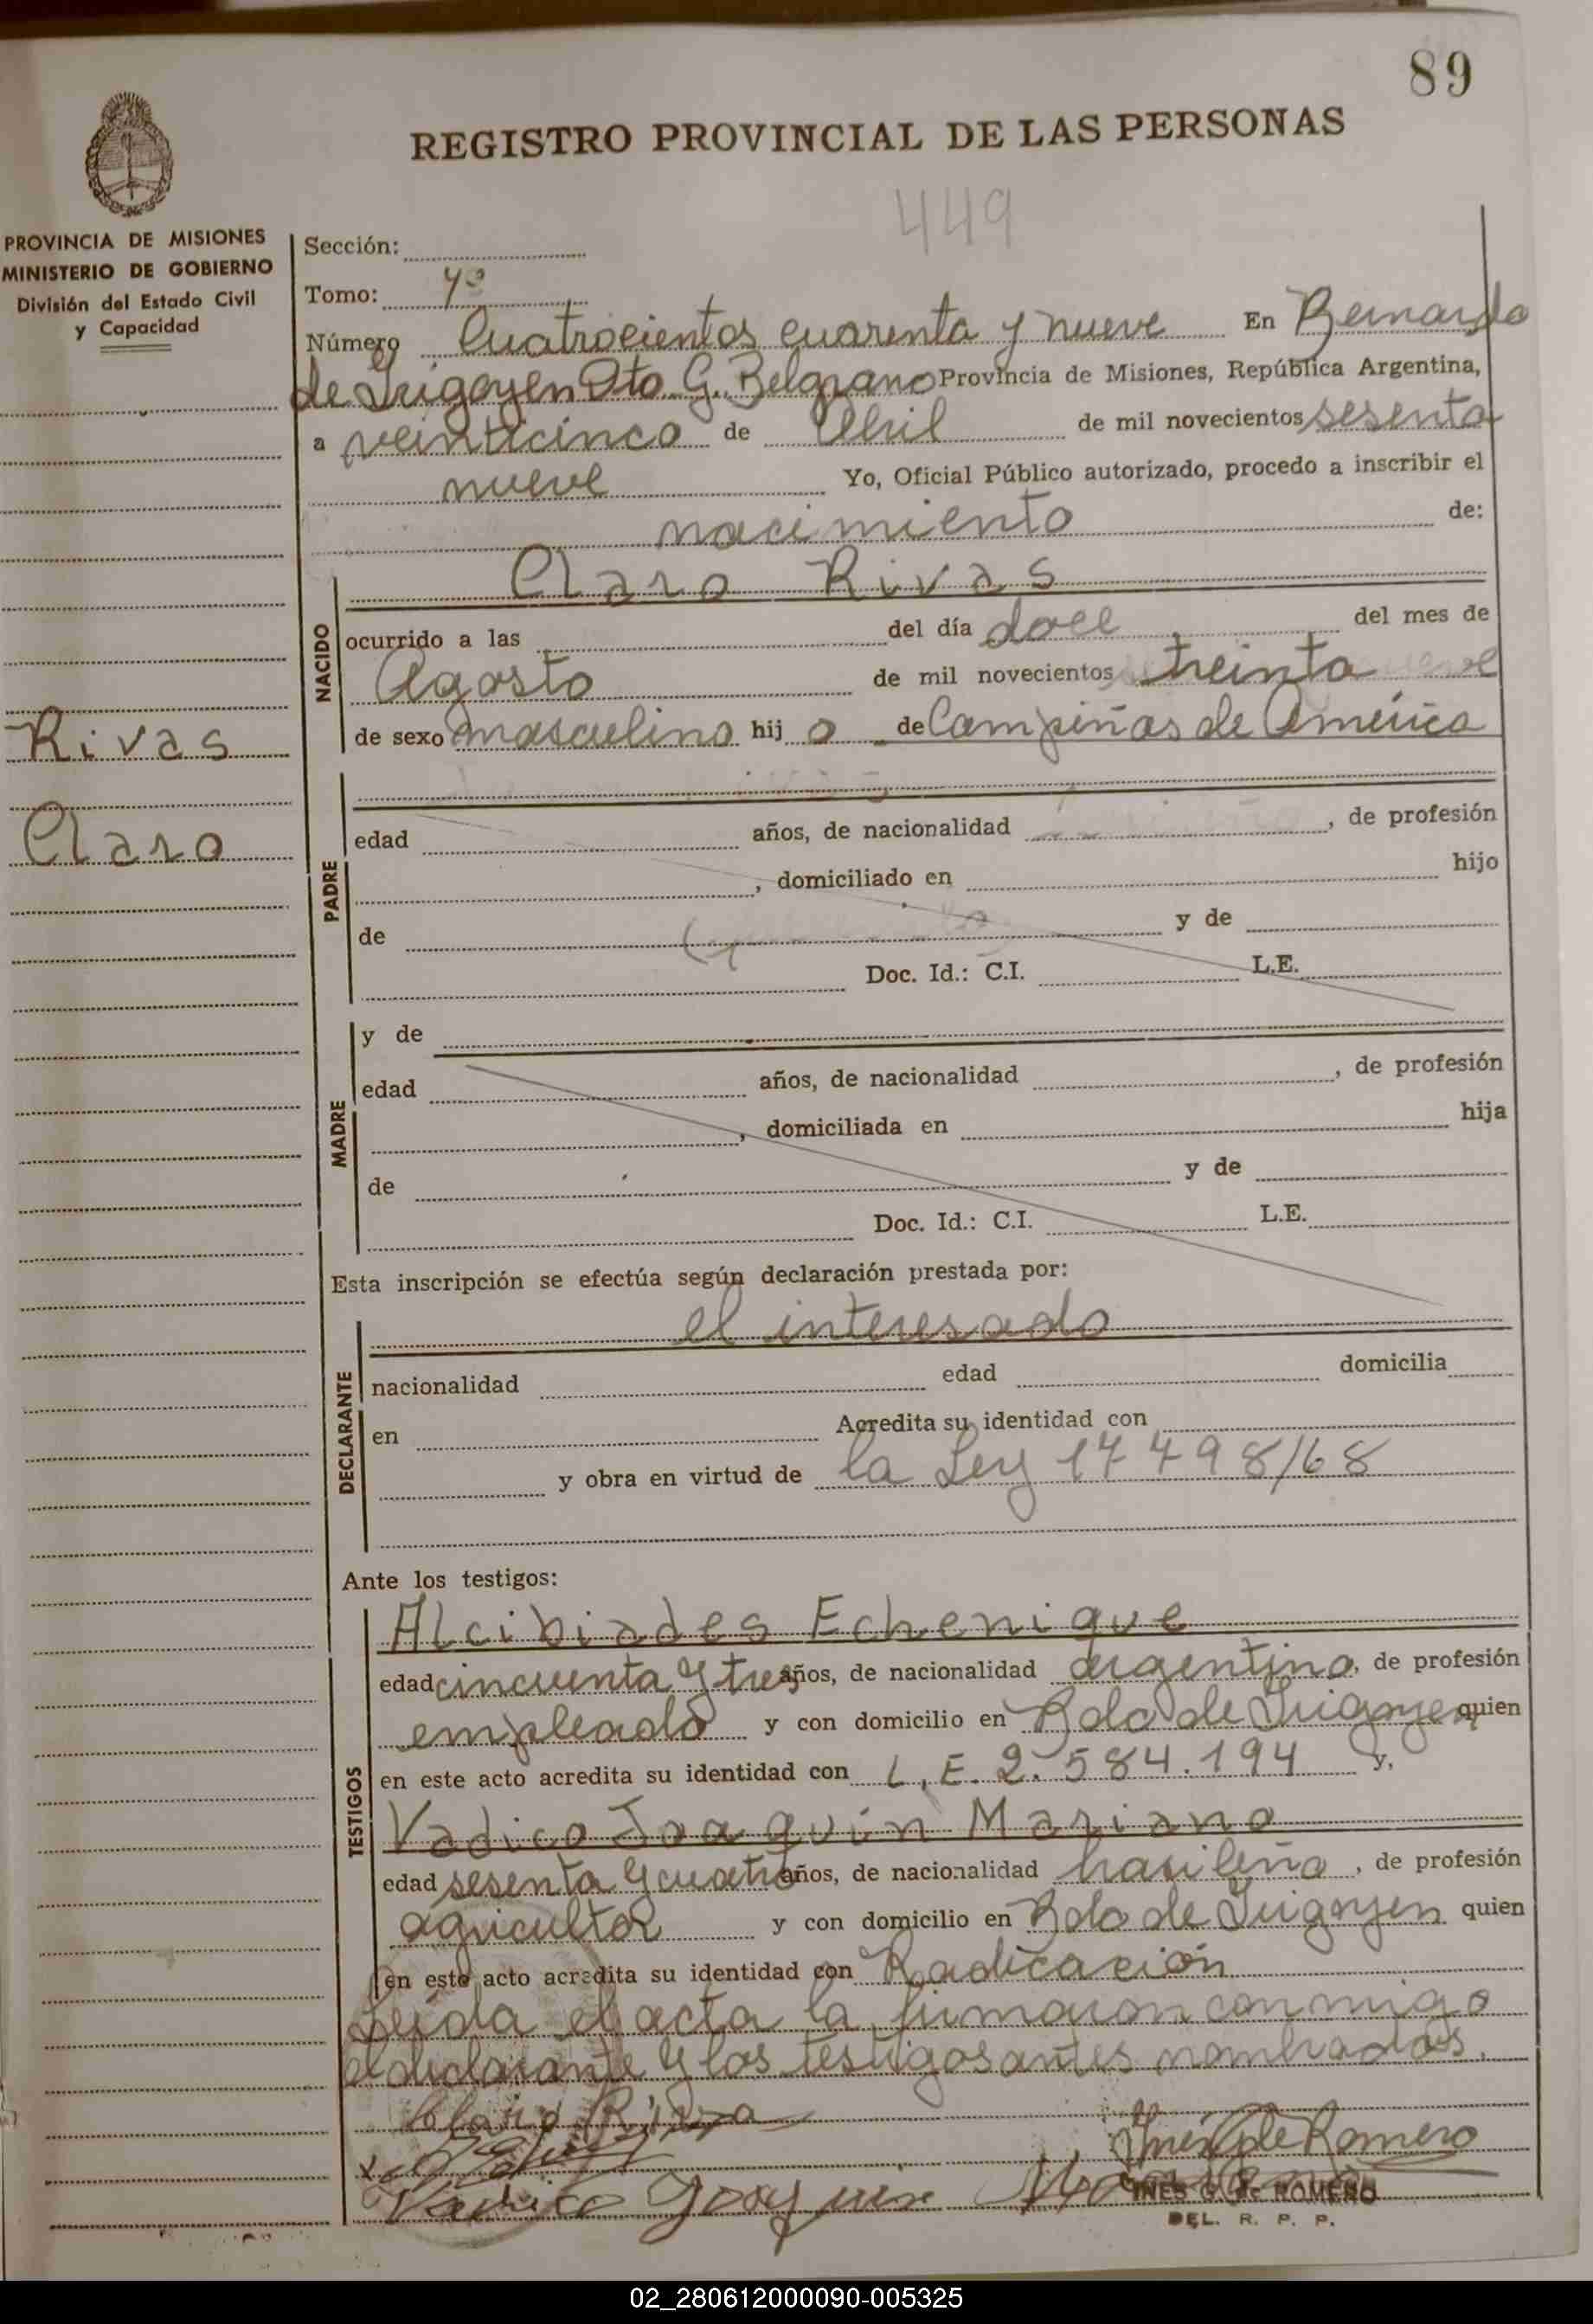 89
REGISTRO PROVINCIAL DE LAS PERSONAS
449
PROVINCIA DE MISIONES
MINISTERIO DE GOBIERNO
División del Estado Civil
y Capacidad
Rivas
Claro
Sección:
Tomo: 4º
Número Cuatrocientos cuarenta y nueve En Bernardo
de Irigoyen Dto. G. Belgrano Provincia de Misiones, República Argentina,
a veinticinco de Abril de mil novecientos sesenta
nueve Yo, Oficial Público autorizado, procedo a inscribir el
nacimiento de:
NACIDO
Claro Rivas
ocurrido a las del día doce del mes de
Agosto de mil novecientos treinta
de sexo masculino hij o de Campiñas de América
PADRE
edad años, de nacionalidad , de profesión
, domiciliado en hijo
de y de
Doc. Id.: C.I. L.E.
MADRE
y de
edad años, de nacionalidad , de profesión
, domiciliada en hija
de y de
Doc. Id.: C.I. L.E.
Esta inscripción se efectúa según declaración prestada por:
DECLARANTE
el interesado
nacionalidad edad domicilia
en Acredita su identidad con
y obra en virtud de la Ley 17498/68
Ante los testigos:
TESTIGOS
Alcibiades Echenique
edad cincuenta y tres años, de nacionalidad argentino, de profesión
empleado y con domicilio en Bdo de Irigoyen quien
en este acto acredita su identidad con L.E. 2.584.194 y,
Vadico Joaquín Mariano
edad sesenta y cuatro años, de nacionalidad brasileño, de profesión
agricultor y con domicilio en Bdo de Irigoyen quien
en este acto acredita su identidad con Radicación
Leída el acta la firmaron conmigo
el declarante y los testigos antes nombrados.
Claro Riva
Inés G. de Romero
Vadico Joaquin
INES G. DE ROMERO
DEL. R. P. P.
02_280612000090-005325